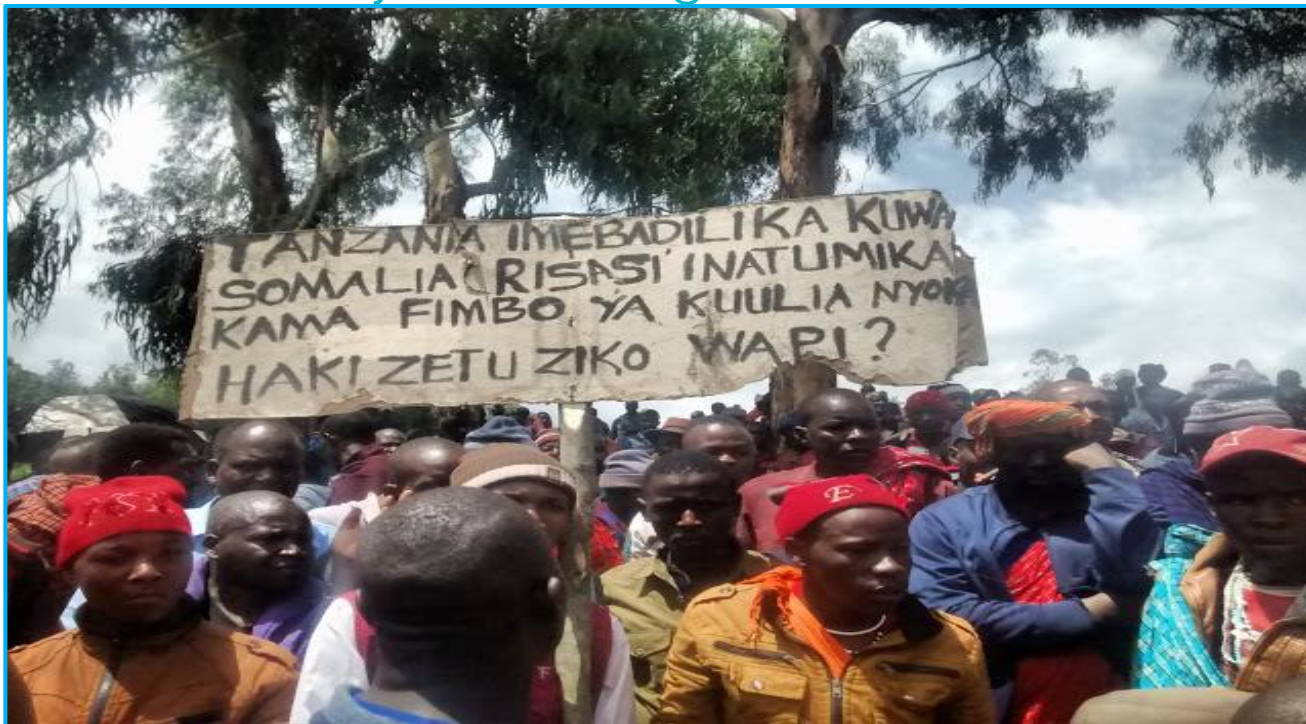 TANZANIA IMEBADILIKA KUWA
SOMALIA RISASI INATUMIKA
KAMA FIMBO YA KUULIA
HAKI ZETU ZIKO WAPI?
E